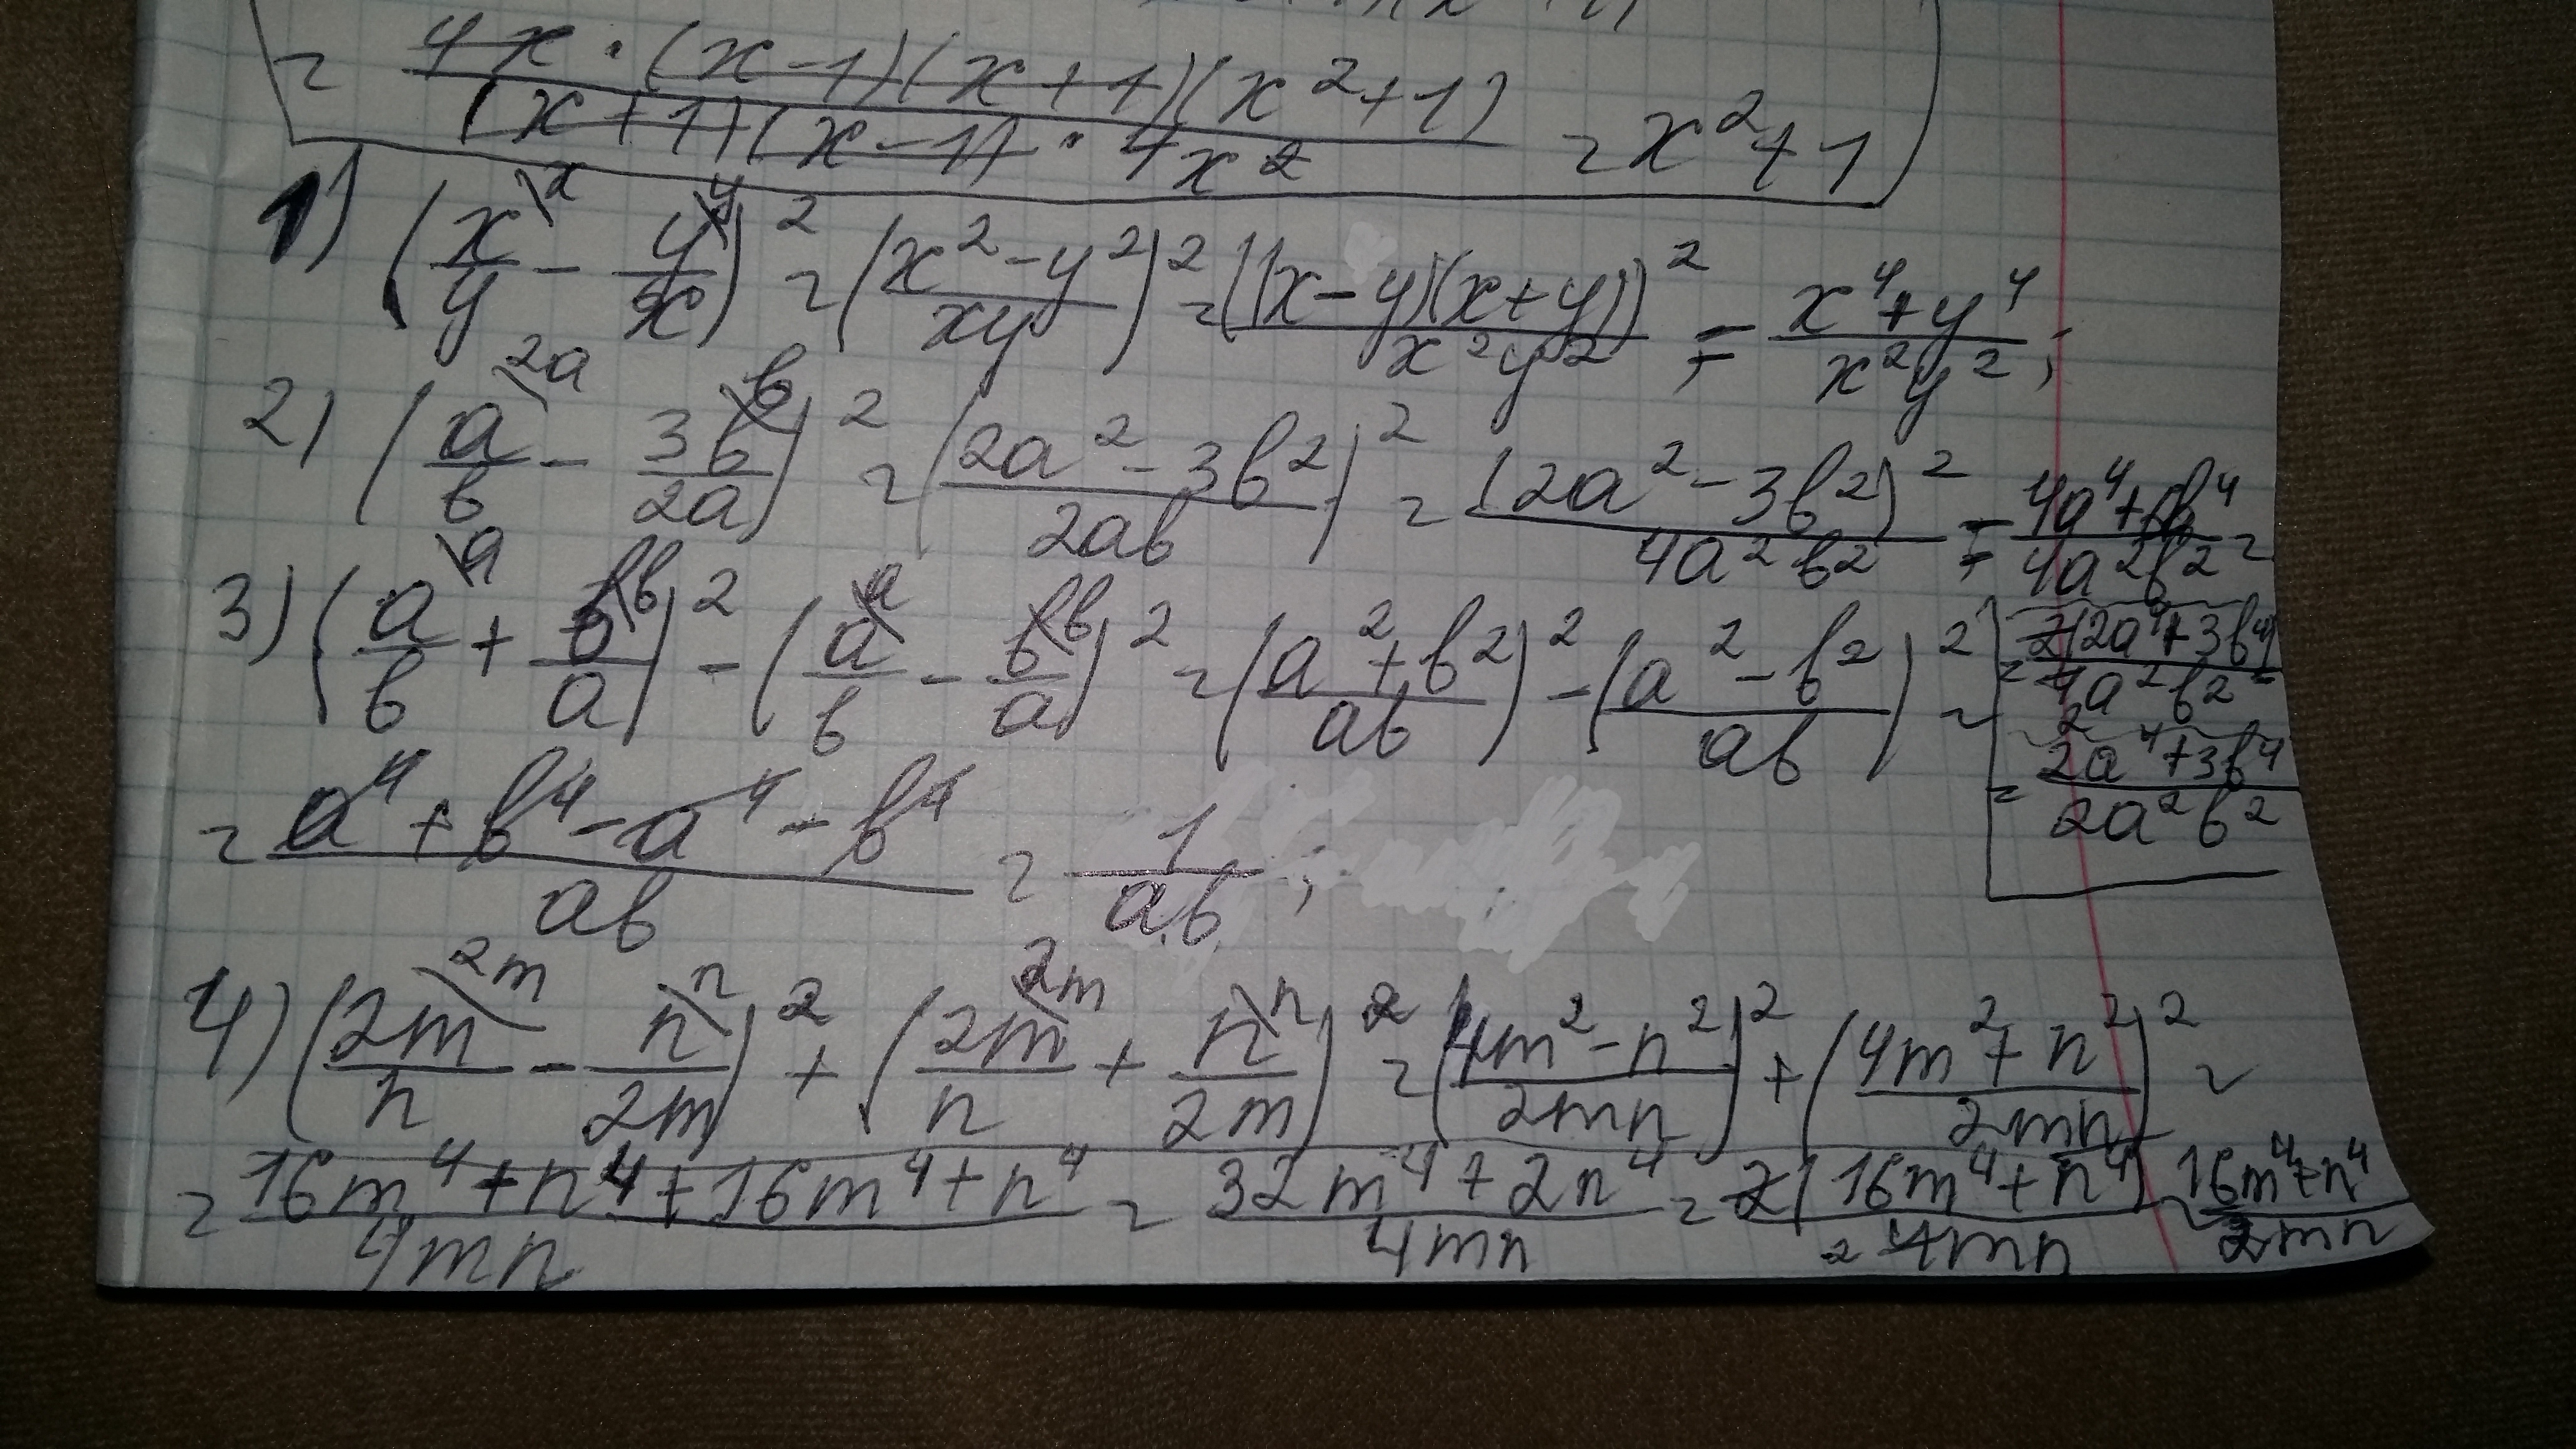 = 4x · (x-1)(x+1)(x²+1) / (x+1)(x-1) · 4x = x²+1
1) (x/y \x - y/x \y)² = (x²-y²/xy)² = ((x-y)(x+y))²/x²y² = x⁴+y⁴/x²y²;
2) (a/b \2a - 3b/2a \b)² = (2a²-3b²/2ab)² = (2a²-3b²)²/4a²b² = 4a⁴+6b⁴/4a²b² =
= 2(2a⁴+3b⁴)/4a²b² 2
= 2a⁴+3b⁴/2a²b²
3) (a/b \a + b/a \b)² - (a/b \a - b/a \b)² = (a²+b²/ab)² - (a²-b²/ab)² =
= a⁴+b⁴-a⁴-b⁴/ab = 1/ab;
4) (2m/n \2m - n/2m \n)² + (2m/n \2m + n/2m \n)² = (4m²-n²/2mn)² + (4m²+n²/2mn)² =
= 16m⁴+n⁴+16m⁴+n⁴/4mn = 32m⁴+2n⁴/4mn = 2(16m⁴+n⁴)/2 4mn = 16m⁴+n⁴/2mn